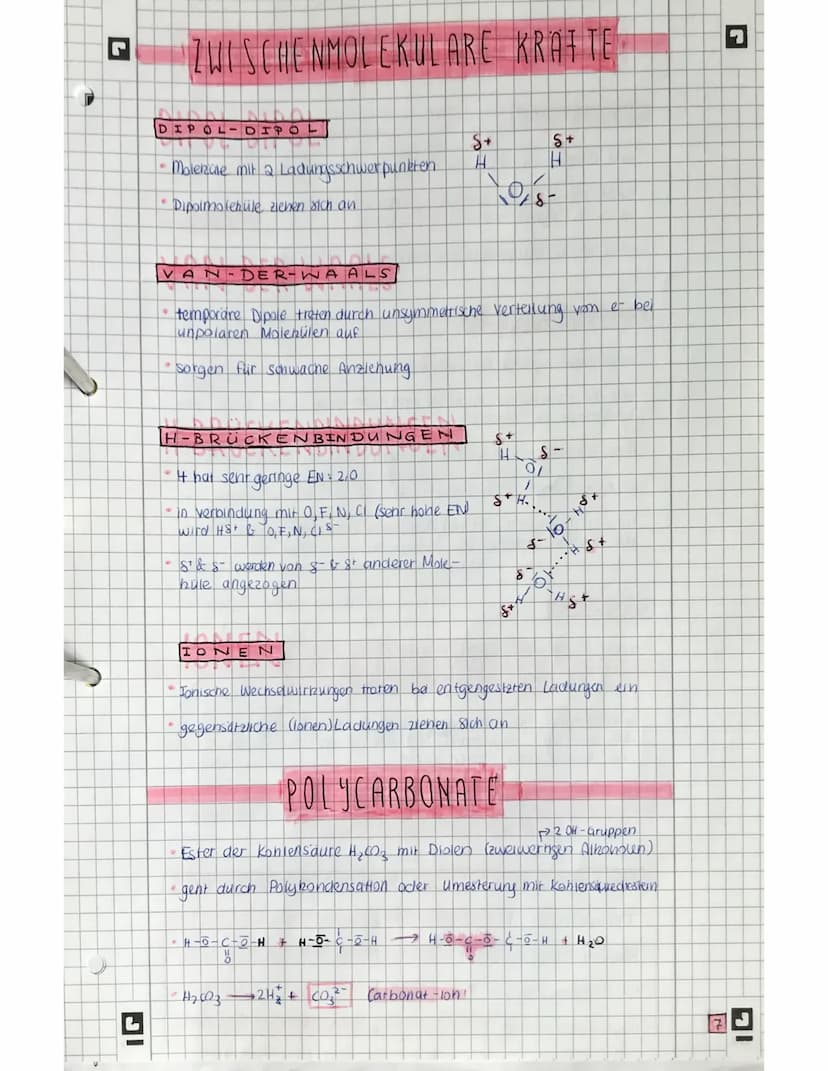 ZWISCHENMOLEKULARE KRÄFTE
DIPOL-DIPOL
• Moleküle mit 2 Ladungsschwerpunkten
• Dipolmoleküle ziehen sich an
δ+ δ+
H H
O δ-
VAN-DER-WAALS
• temporäre Dipole treten durch unsymmetrische Verteilung von e- bei
unpolaren Molekülen auf
• sorgen für schwache Anziehung
H-BRÜCKENBINDUNGEN
• H hat sehr geringe EN: 2,0
• in Verbindung mit O, F, N, Cl (sehr hohe EN)
wird Hδ+ & O,F,N,Cl δ-
• δ+ & δ- werden von δ- & δ+ anderer Mole-
küle angezogen
δ+
H δ-
O
δ+ H δ+
H
O
δ- H δ+
δ-
O
H H δ+
δ+
IONEN
• Ionische Wechselwirkungen traten be entgengestzten Ladungen ein
• gegensätzliche (Ionen)Ladungen ziehen sich an
POLYCARBONATE
↱ 2 OH-Gruppen
• Ester der Kohlensäure H₂CO₃ mit Diolen (zweiwertigen Alkoholen)
• geht durch Polykondensation oder Umesterung mit Kohlensäurediestern
• H-O-C-O-H + H-O-C-O-H → H-O-C-O-C-O-H + H₂O
O O
• H₂CO₃ → 2H₂⁺ + CO₃²⁻ Carbonat-Ion
7